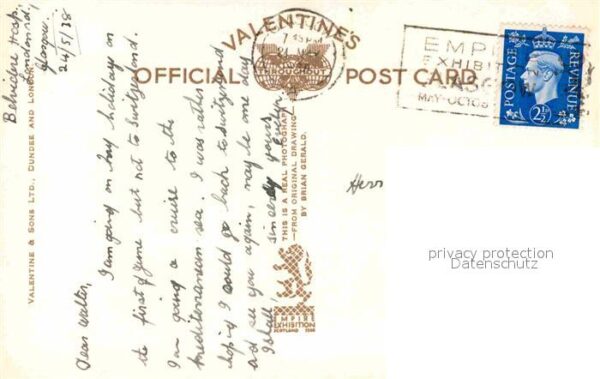 Belvidere Hosp.,
London Rd.,
Glasgow.
24/5/38
Dear Walter,
I am going on my holidays on
the first of June but not to Switzerland.
I am going a cruise to the
Mediterranean sea. I was rather
hoping I could go back to Switzerland
and see you again, may be one day
I shall,
sincerely yours,
Evelyn
VALENTINE'S
OFFICIAL POST CARD
VALENTINE & SONS LTD., DUNDEE AND LONDON
THIS IS A REAL PHOTOGRAPH
—FROM ORIGINAL DRAWING—
BY BRIAN GERALD.
EMPIRE
EXHIBITION
SCOTLAND 1938
7.45 PM
EMPI
EXHIBIT
MAY-OCTOB
POSTAGE
REVENUE
2½D
Herr
privacy protection
Datenschutz